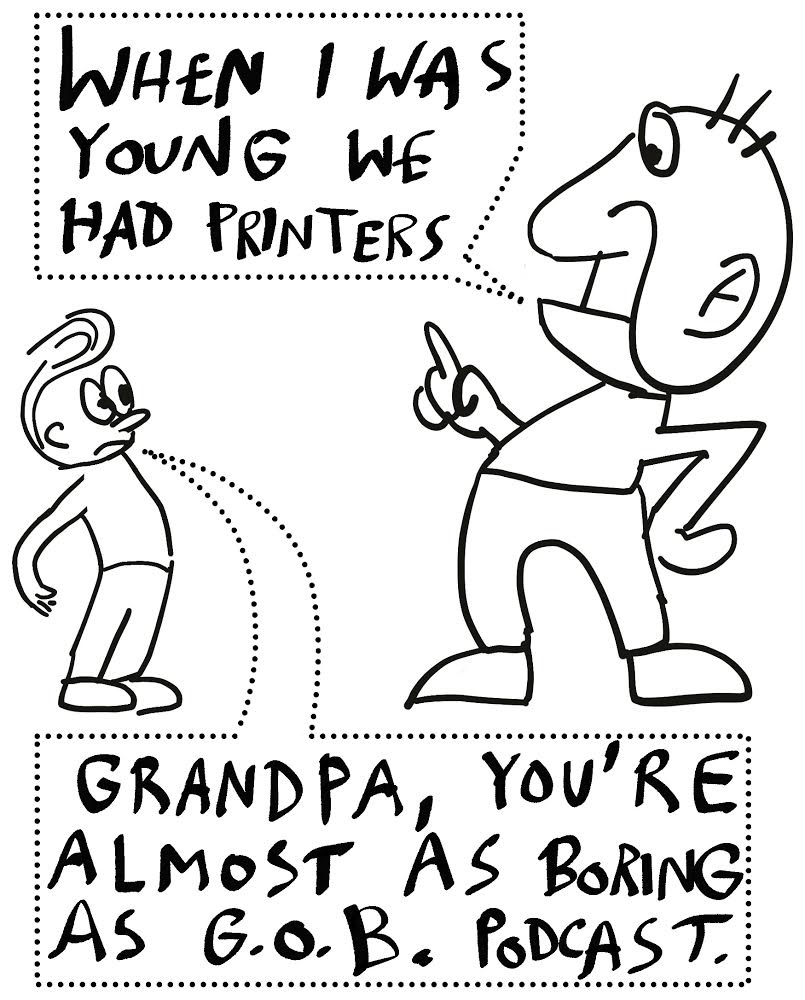 WHEN I WAS
YOUNG WE
HAD PRINTERS
GRANDPA, YOU'RE
ALMOST AS BORING
AS G.O.B. PODCAST.